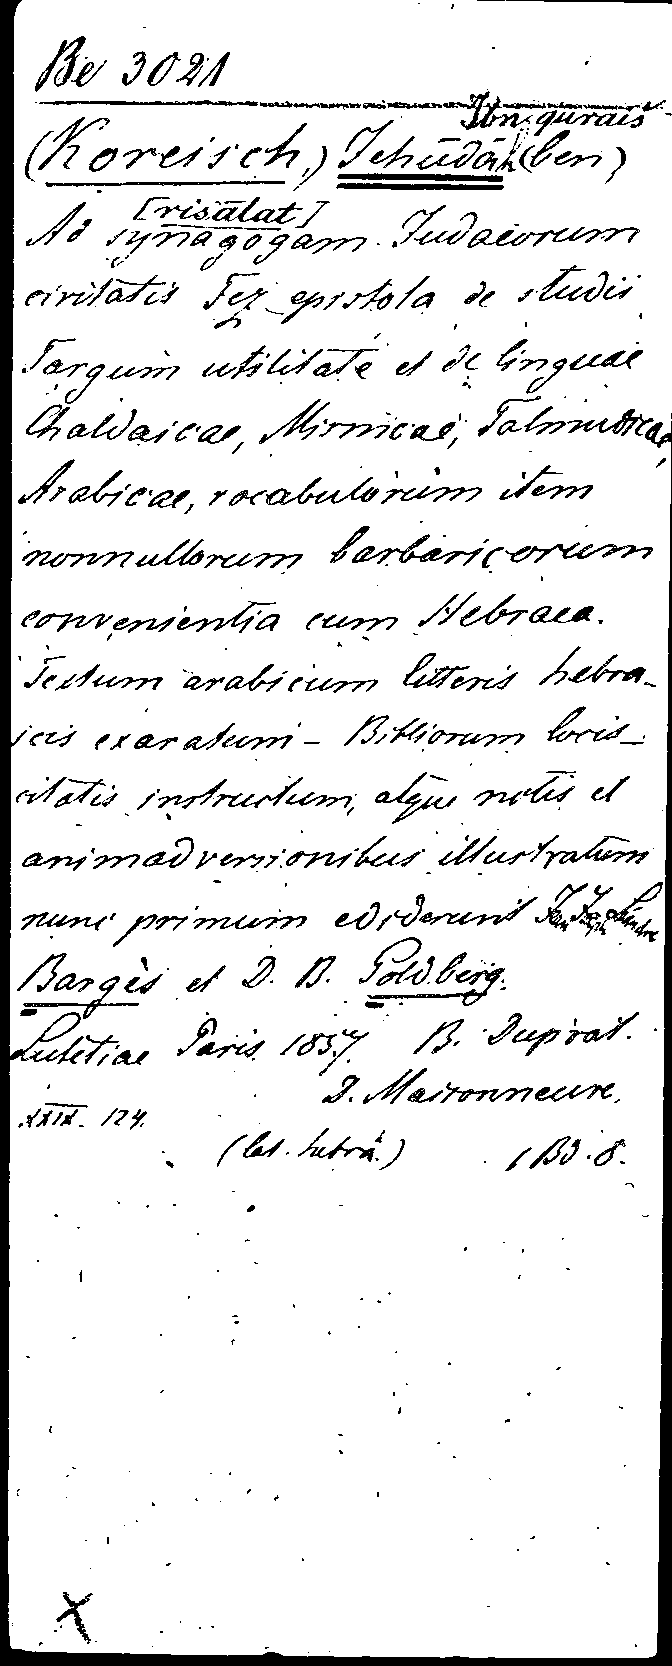 Be 3021
Ibn qurais
(Koreisch,) Jehūdāh (ben)
[risālat]
Ad synagogam Judaeorum
civitatis Fez epistola de studii
Targum utilitate et de linguae
Chaldaicae, Misnicae, Talmudicae,
Arabicae, vocabulorum item
nonnullorum barbaricorum
convenientia cum Hebraea.
Textum arabicum litteris hebra-
icis exaratum – Bibliorum locis
citatis instructum, atque notis et
animadversionibus illustratum
nunc primum ediderunt
Bargès et D. B. Goldberg.
Lutetiae Paris. 1857. B. Duprat.
D. Maisonneuve.
XXIX. 124.
(lat. hebrä.) 1 Bd. 8.
X